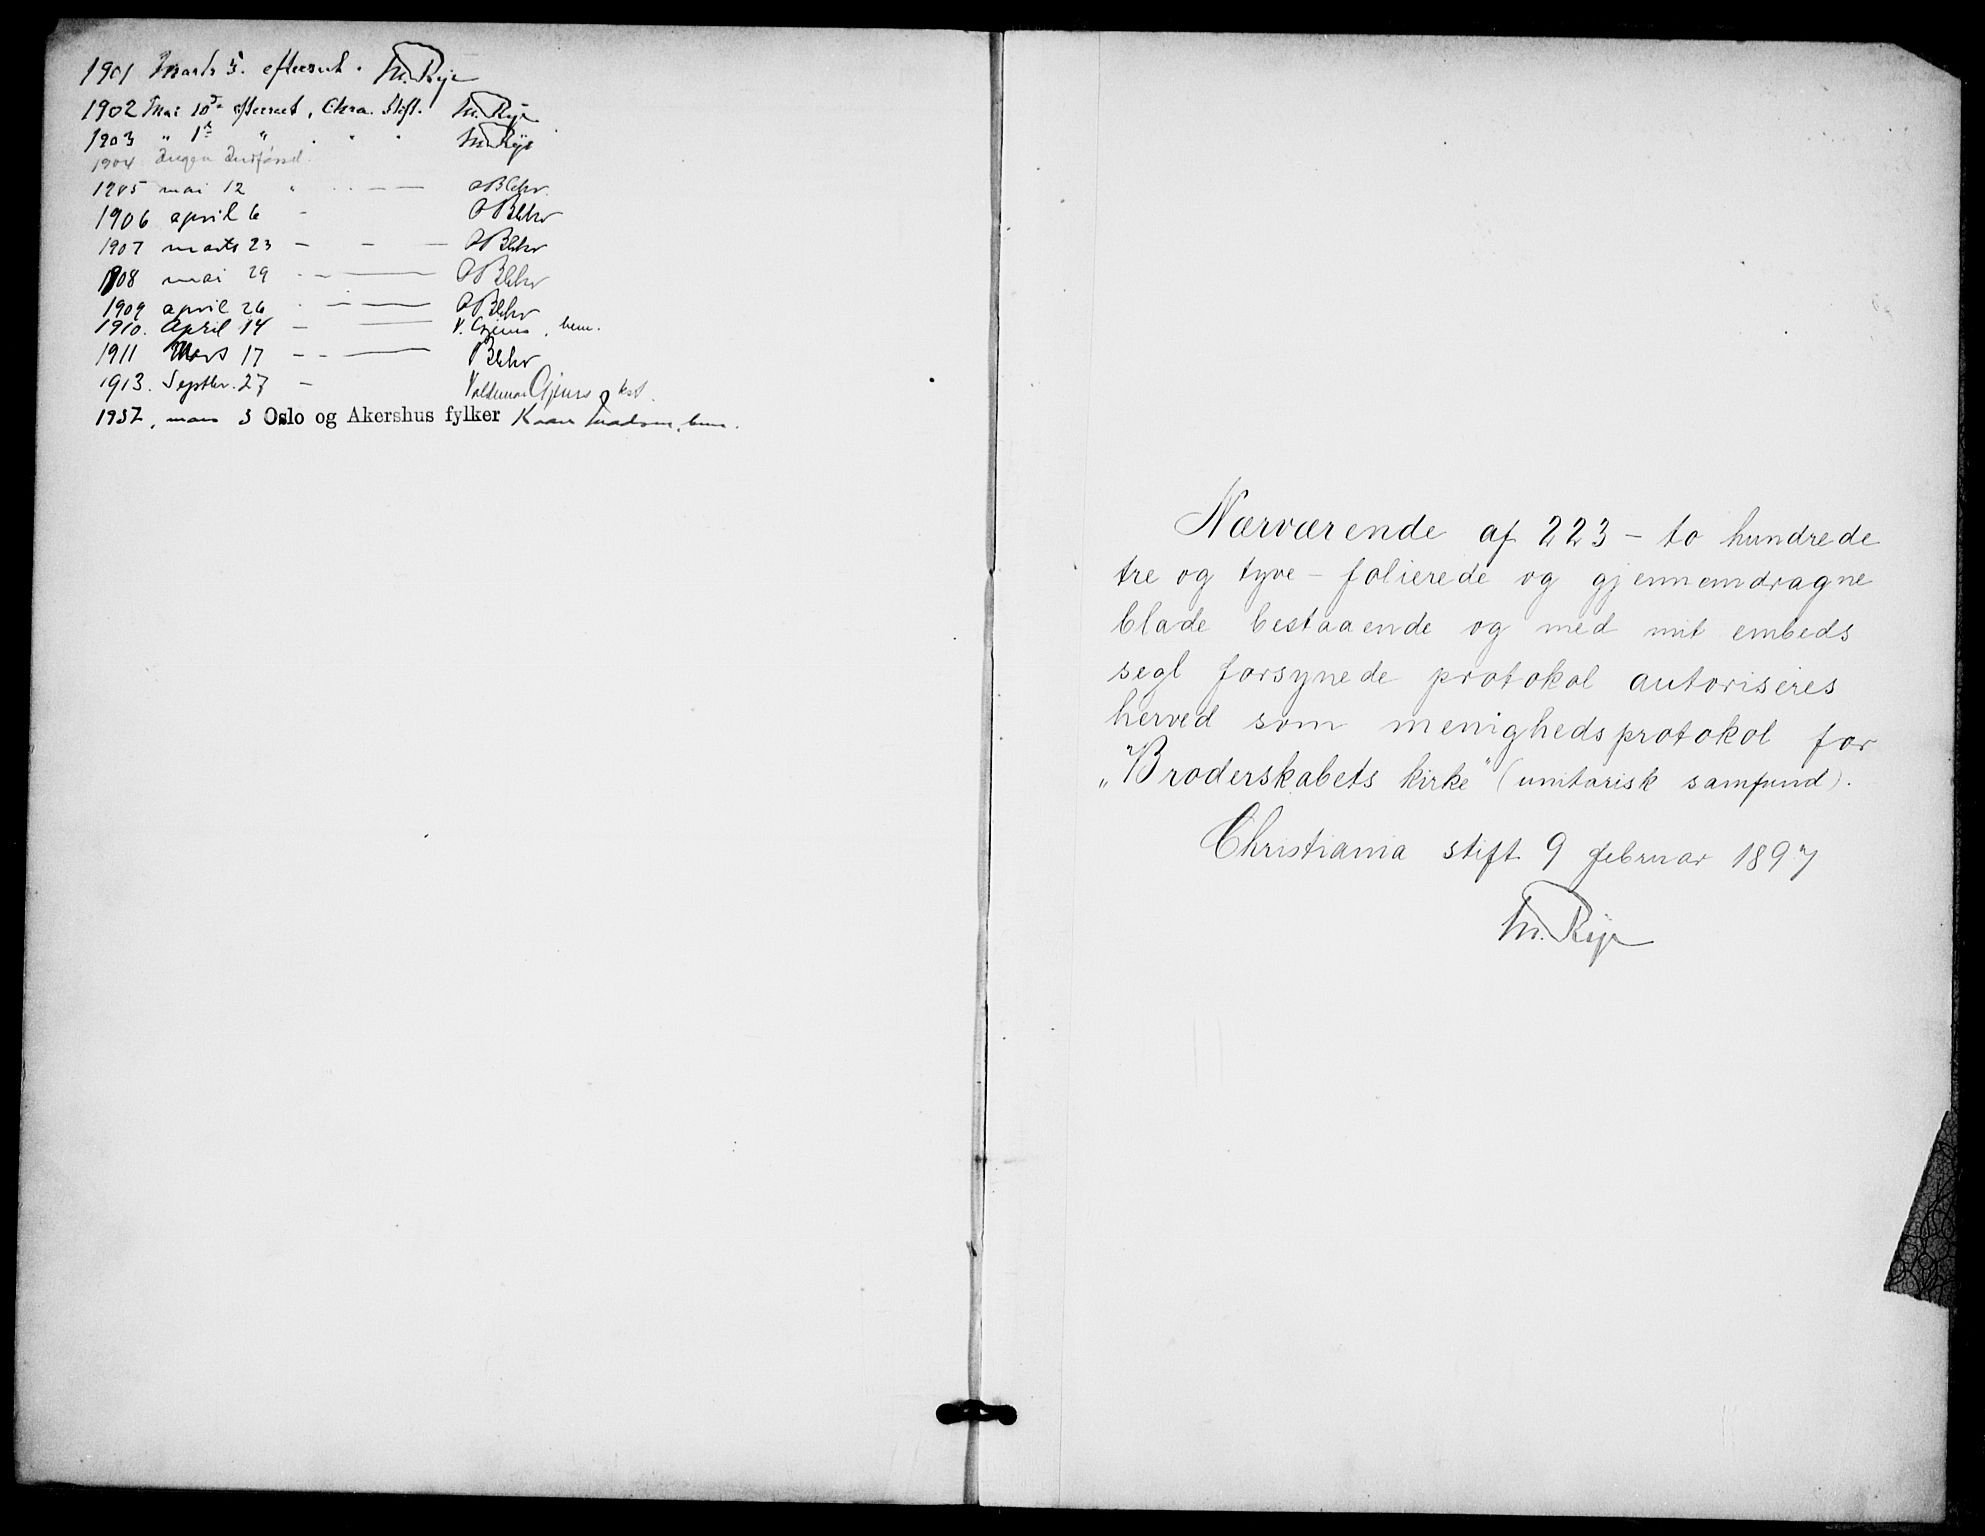 1901 Marts 5. efterset. M. Rye
1902 Mai 10de efterset, Chra. Stift. M. Rye
1903 " 1ste " " " M. Rye
1904 Ingen Indførsel.
1905 mai 12 " - - — OBlehr.
1906 april 6 - OBlehr
1907 marts 23 - - — OBlehr
1908 mai 29 - - — OBlehr
1909 april 26 - - — OBlehr
1910. April 14 - — V. Gjerus, bem.
1911 Mars 17 - - — Blehr
1913. Septbr. 27 - Valdemar Gjerus kst.
1937, mars 3 Oslo og Akershus fylker Kaare bem.
Nærværende af 223 - to hundrede
tre og tyve - folierede og gjennemdragne
blade bestaaende og med mit embeds
segl forsynede protokol autoriseres
herved som menighedsprotokol for
„Broderskabets kirke" (unitarisk samfund).
Christiania stift 9 februar 1897
M. Rye